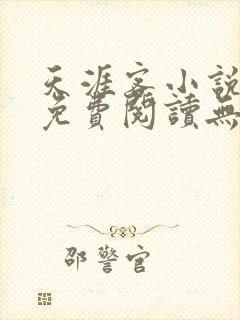 天涯客小說
免費閱讀無
邵警官